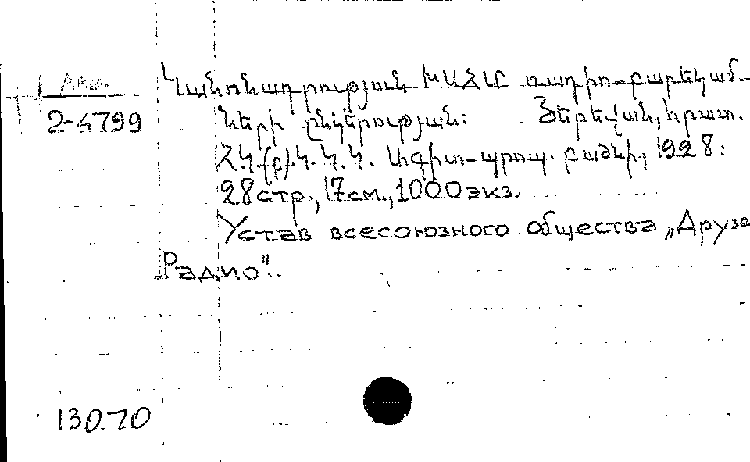 Арм.
2-4799
Կանոնադրության ԽՍՀՄ ռադիո-բարեկամ-
ների ընկերության: Յերեվան, հրատ.
ՀԿ(բ)Կ Կ.Կ. Ագիտ-պրոպ. բաժնի, 1928:
28стр., 17см., 1000экз.
Устав всесоюзного общества „Друзе
Радио".
130.70